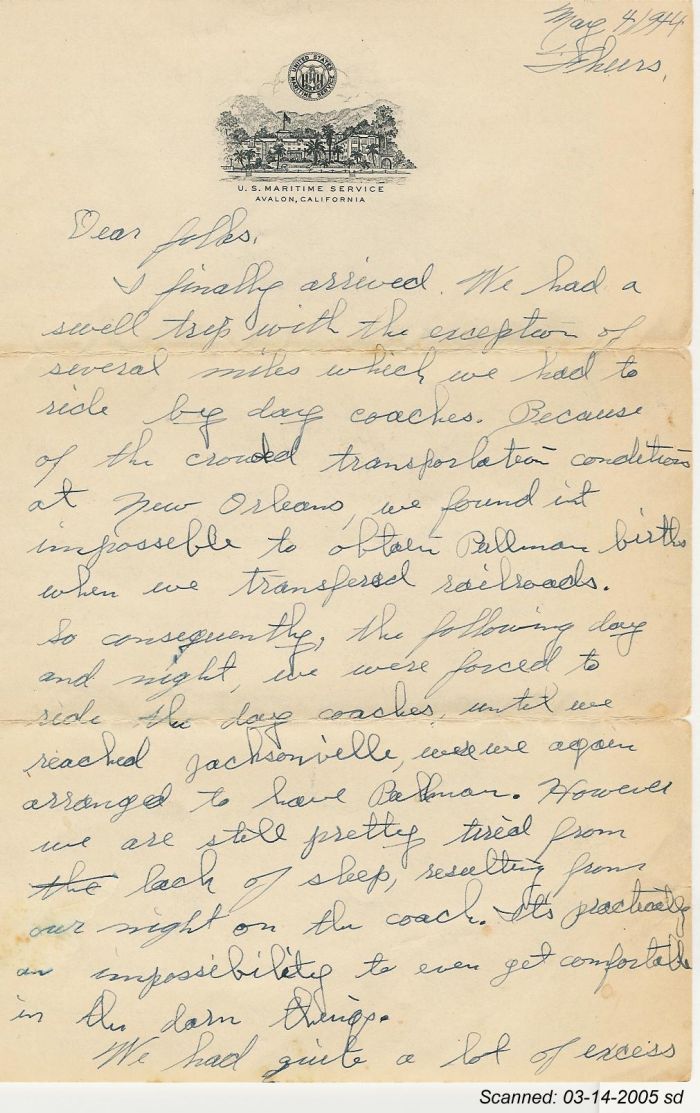 May 4, 1944
Thurs,
UNITED STATES MARITIME SERVICE
U.S. MARITIME SERVICE
AVALON, CALIFORNIA
Dear folks,
I finally arrived. We had a
swell trip with the exception of
several miles which we had to
ride by day coaches. Because
of the crowded transportation conditions
at New Orleans, we found it
impossible to obtain Pullman births
when we transfered railroads.
So consequently, the following day
and night, we were forced to
ride the day coaches, until we
reached Jacksonville, were we again
arranged to have Pullman. However
we are still pretty tired from
the lack of sleep, resulting from
our night on the coach. It's practically
an impossibility to even get comfortable
in the darn things.
We had quite a lot of excess
Scanned: 03-14-2005 sd